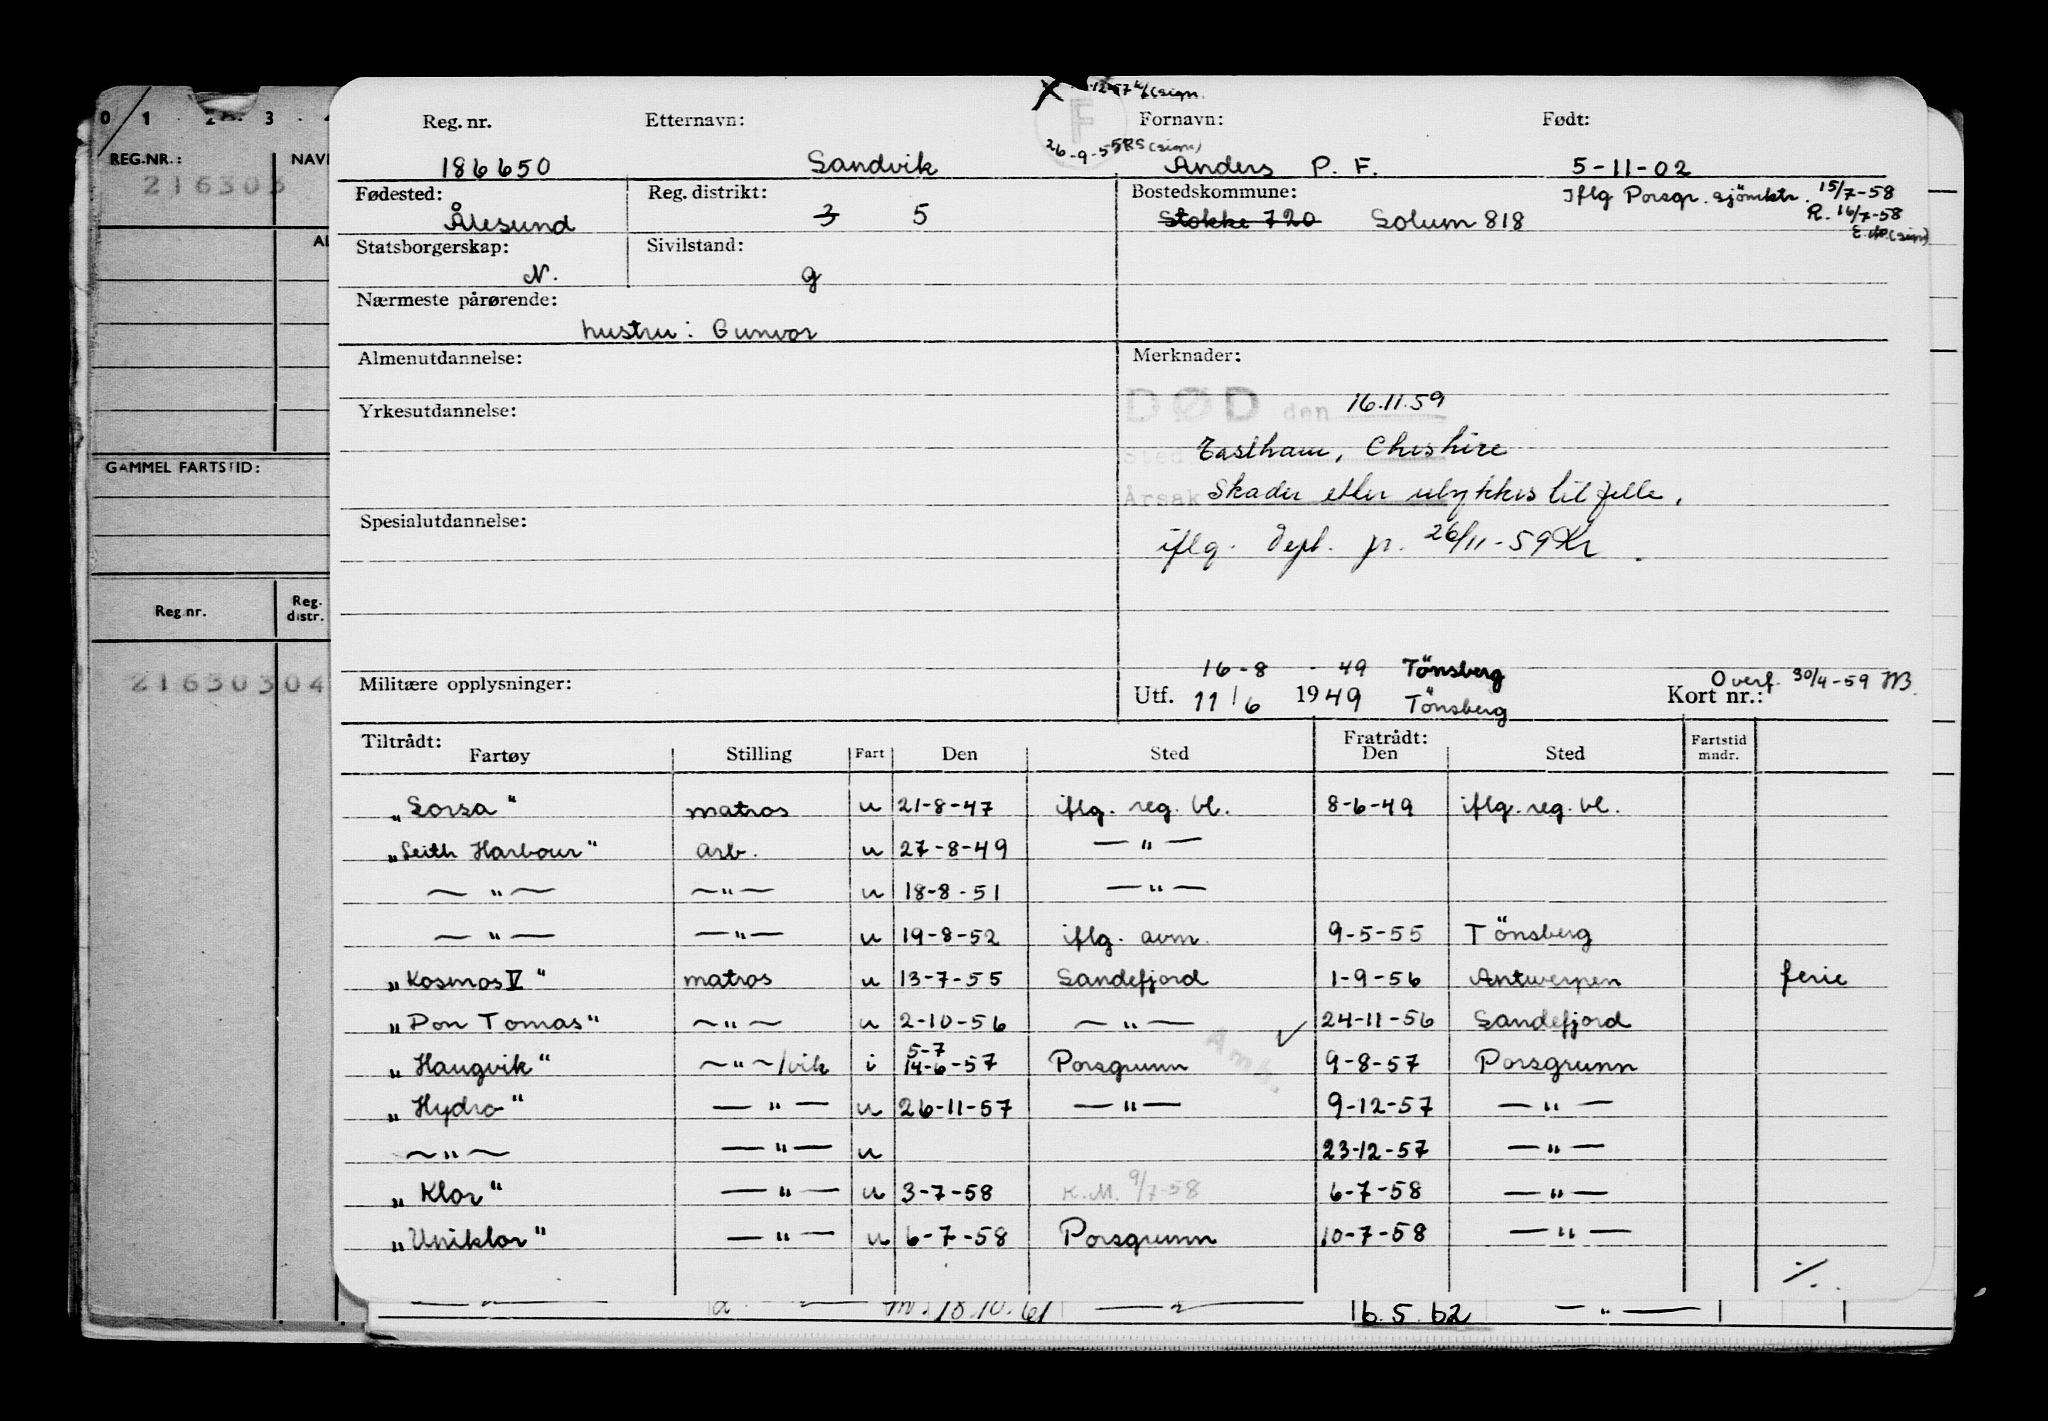 0 1 2 3
REG.NR.: NAV
216303
GAMMEL FARTSTID:
Reg nr. Reg. distr.
21630304
X 12-57 (sign.
F
26-9-55 RS (sign)
Reg. nr. Etternavn: Fornavn: Født:
186650 Sandvik Anders P. F. 5-11-02
Fødested: Reg. distrikt: Bostedskommune: Iflg Porsgr. sjömktr. 15/7-58
R. 16/7-58
Ålesund 3 5 Stokke 720 Solum 818
Statsborgerskap: Sivilstand:
N. g
Nærmeste pårørende:
hustru: Gunvor
Almenutdannelse: Merknader:
DØD den 16.11.59
Yrkesutdannelse:
Sted Eastham, Cheshire
Årsak Skader etter ulykkestilfelle,
Spesialutdannelse:
iflg. dept. pr. 26/11-59 Kr.
16-8 - 49 Tönsberg
Militære opplysninger: Utf. 11/6 1949 Tönsberg Kort nr.: Overf. 30/4-59
Tiltrådt: Fratrådt:
Fartøy Stilling Fart Den Sted Den Sted Fartstid mndr.
„Sorsa“ matros u 21-8-47 iflg. reg. bl. 8-6-49 iflg. reg. bl.
„Leith Harbour“ arb. u 27-8-49 — " —
— " — — " — u 18-8-51 — " —
— " — — " — u 19-8-52 iflg. avm. 9-5-55 Tönsberg
„Kosmos V“ matros u 13-7-55 Sandefjord 1-9-56 Antwerpen ferie
„Don Tomas“ — " — u 2-10-56 — " — ✓ 24-11-56 Sandefjord
Amb.
5-7
„Haugvik“ — " — /vik i 14-6-57 Porsgrunn 9-8-57 Porsgrunn
„Hydro“ — " — u 26-11-57 — " — 9-12-57 — " —
— " — — " — u 23-12-57 — " —
„Klor“ — " — u 3-7-58 K.M. 9/7-58 6-7-58 — " —
„Uniklor“ — " — u 6-7-58 Porsgrunn 10-7-58 — " —
./.
18.10.61 16.5.62 — " —